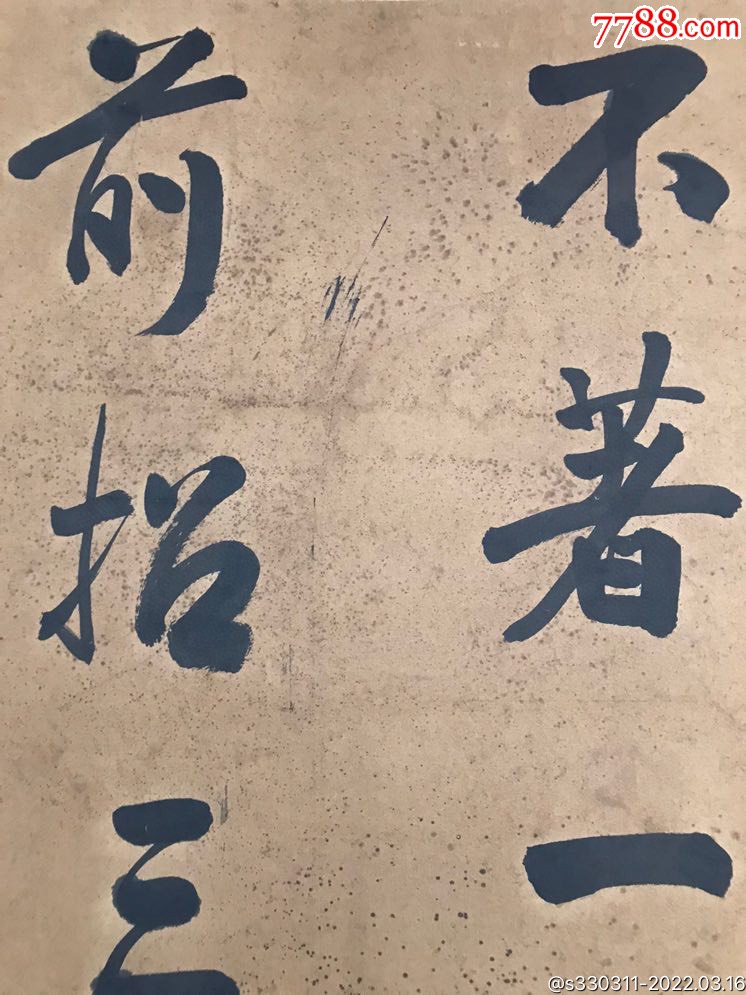 7788.com
不著一
前招三
@s330311-2022.03.16